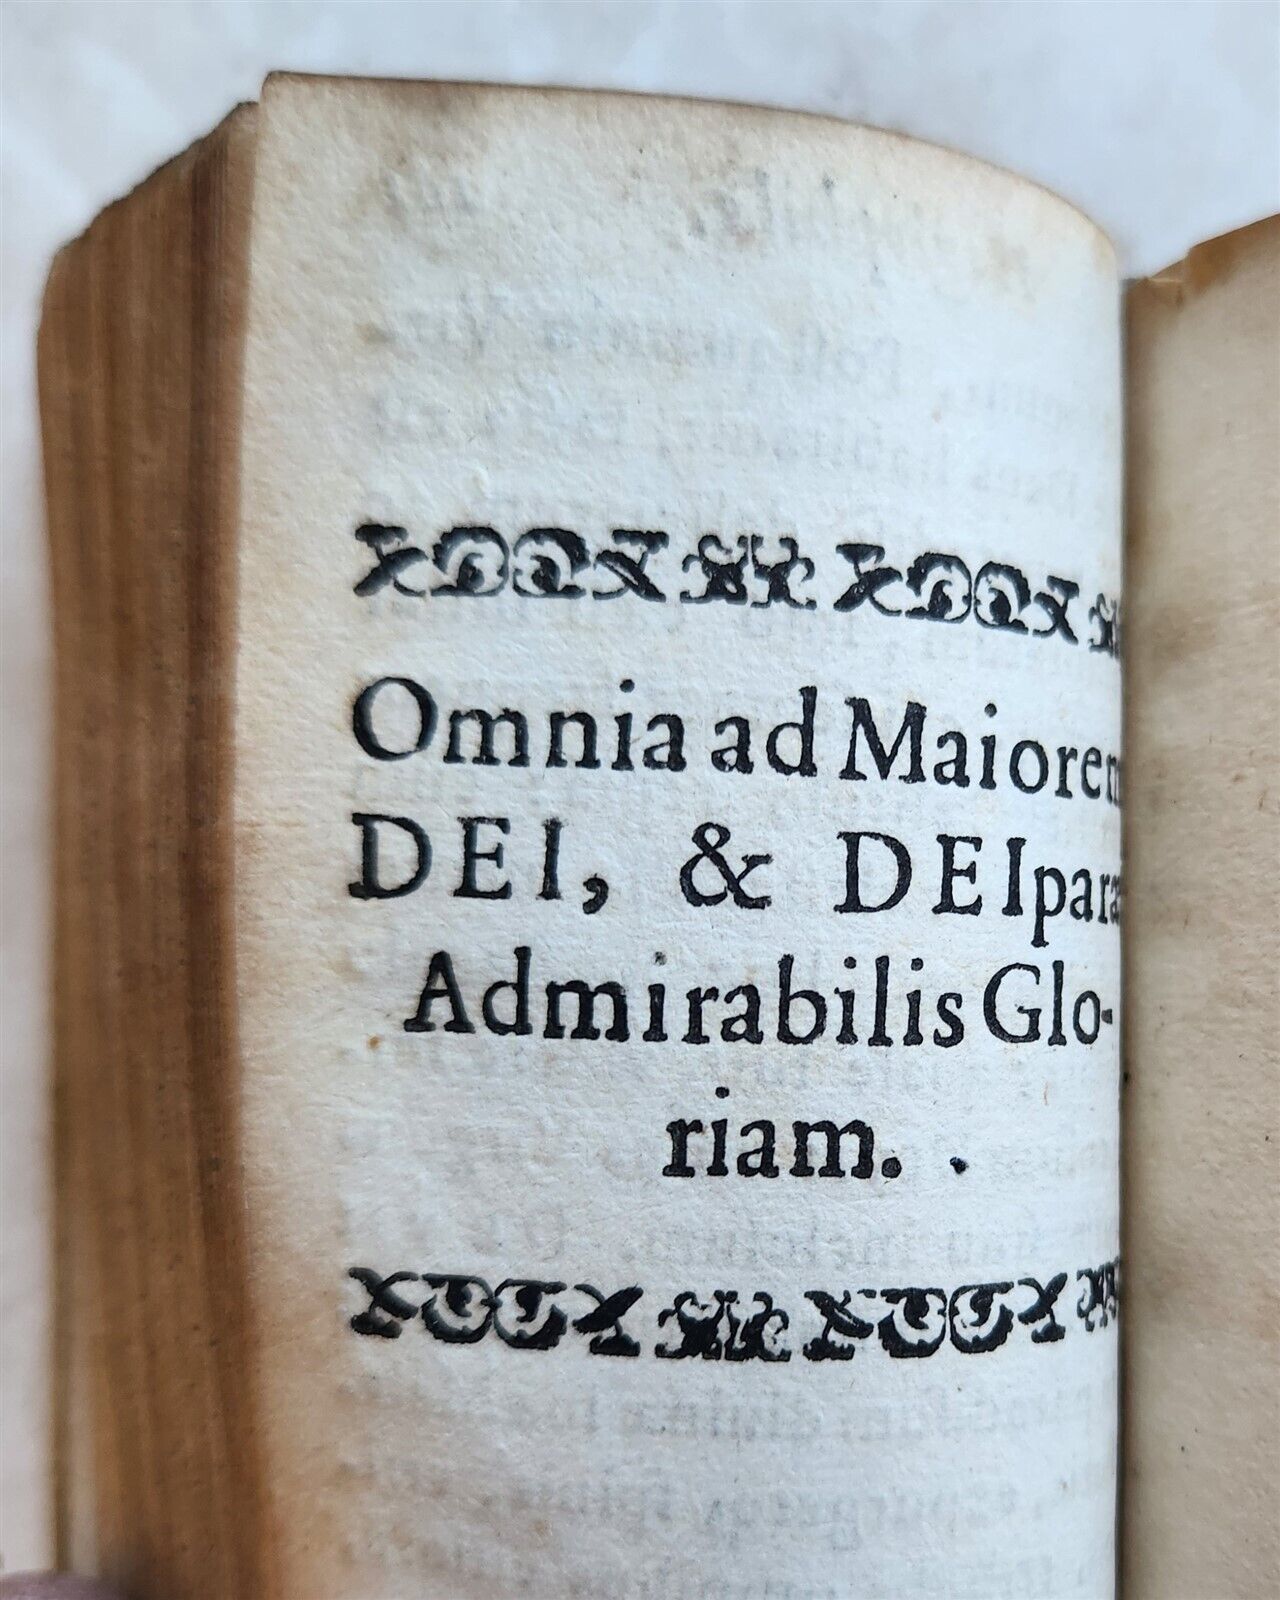 Omnia ad Maiorem
DEI, & DEIpara
Admirabilis Glo-
riam. .